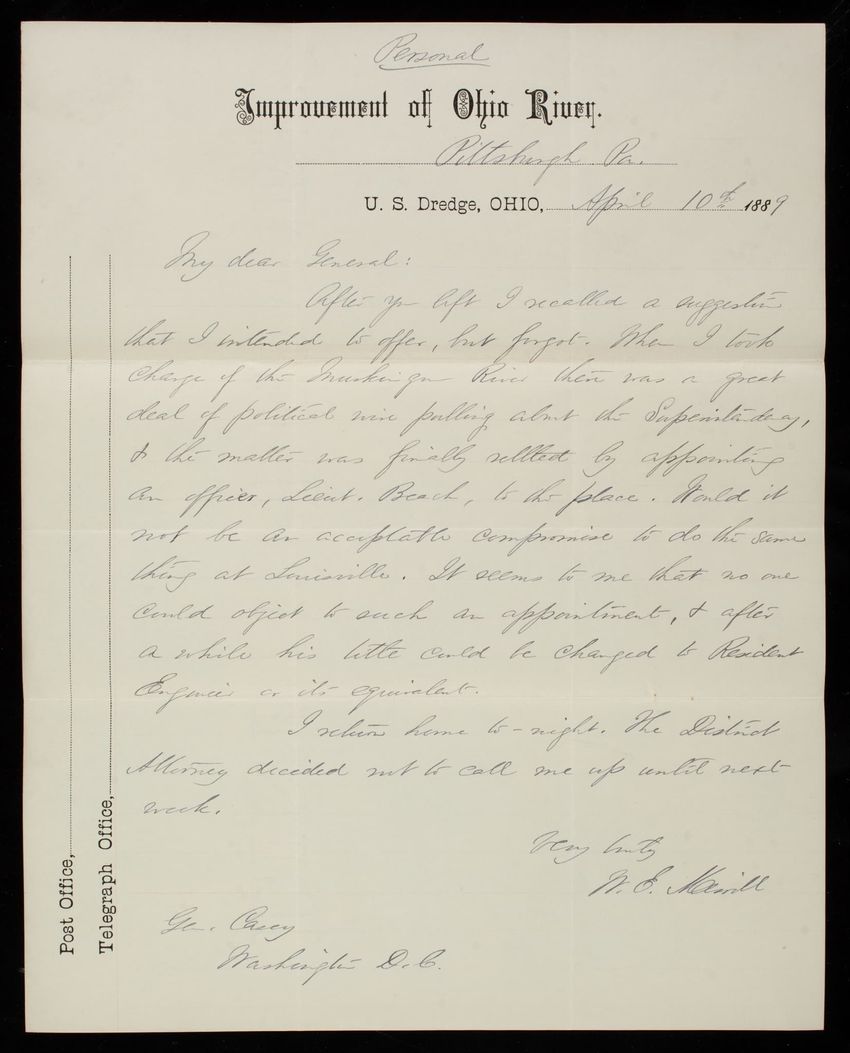 Personal
Improvement of Ohio River.
Pittsburgh Pa.
U. S. Dredge, OHIO, April 10th 1889
My dear General:
After yr left I recalled a suggestion
that I intended to offer, but forgot. When I took
charge of the Muskingum River there was a great
deal of political wire pulling about the Superintendency,
& the matter was finally settled by appointing
an officer, Lieut. Beach, to the place. Would it
not be an acceptable compromise to do the same
thing at Louisville. It seems to me that no one
could object to such an appointment, & after
a while his title could be changed to Resident
Engineer or its equivalent.
I return home to-night. The District
Attorney decided not to call me up until next
week.
Very truly
W. E. Merrill
Gen. Casey
Washington D.C.
Post Office,
Telegraph Office,